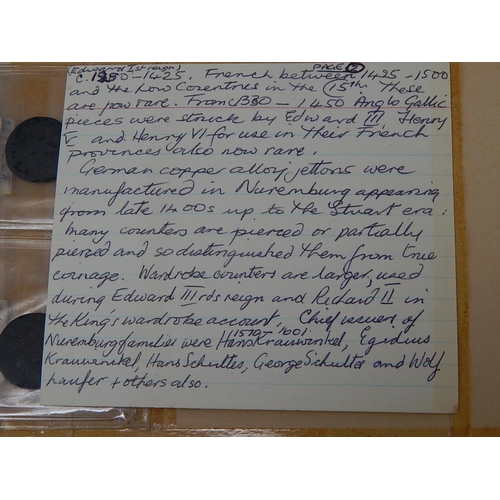 (Edward Ist reign) PAGE 2
c. 1350-1425. French between 1425-1500
and the Low Countries in the 15th. These
are now rare. From c1380-1450 Anglo Gallic
pieces were struck by Edward III, Henry
V and Henry VI for use in their French
provinces also now rare.
German copper alloy jettons were
manufactured in Nuremburg appearing
from late 1400s up to the Stuart era:
many counters are pierced or partially
pierced and so distinguished them from true
coinage. Wardrobe counters are larger, used
during Edward IIIrds reign and Richard II in
the King's wardrobe account. Chief issuers of
Nuremburg families were Hans Krauwinkel, Egidius
Krauwinckel, Hans Schultes, George Schulta and Wolf
Laufer + others also.